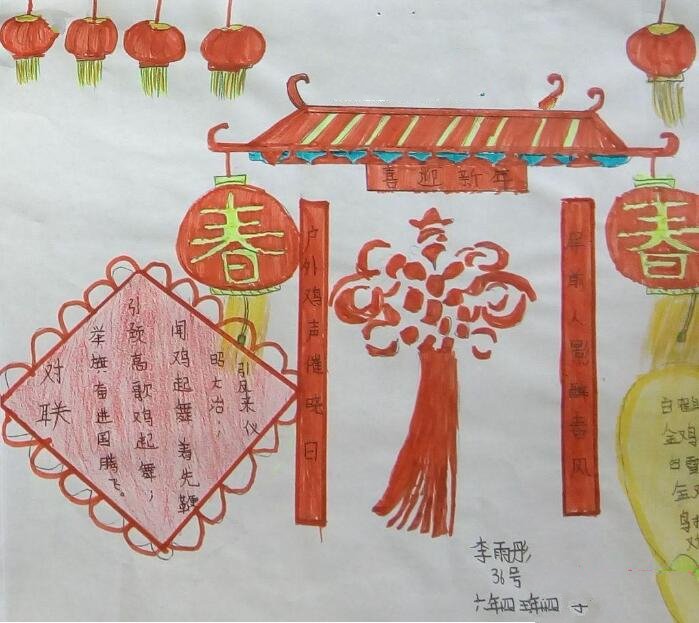 喜迎新年
春
春
户外鸡声催晓日
早前人影醉春风
对联
举旗奋进国腾飞。
引颈高歌鸡起舞；
闻鸡起舞着先鞭
昭大治；
引凤来仪
白
金鸡
白雪
金
李雨彤
36号
六年四班